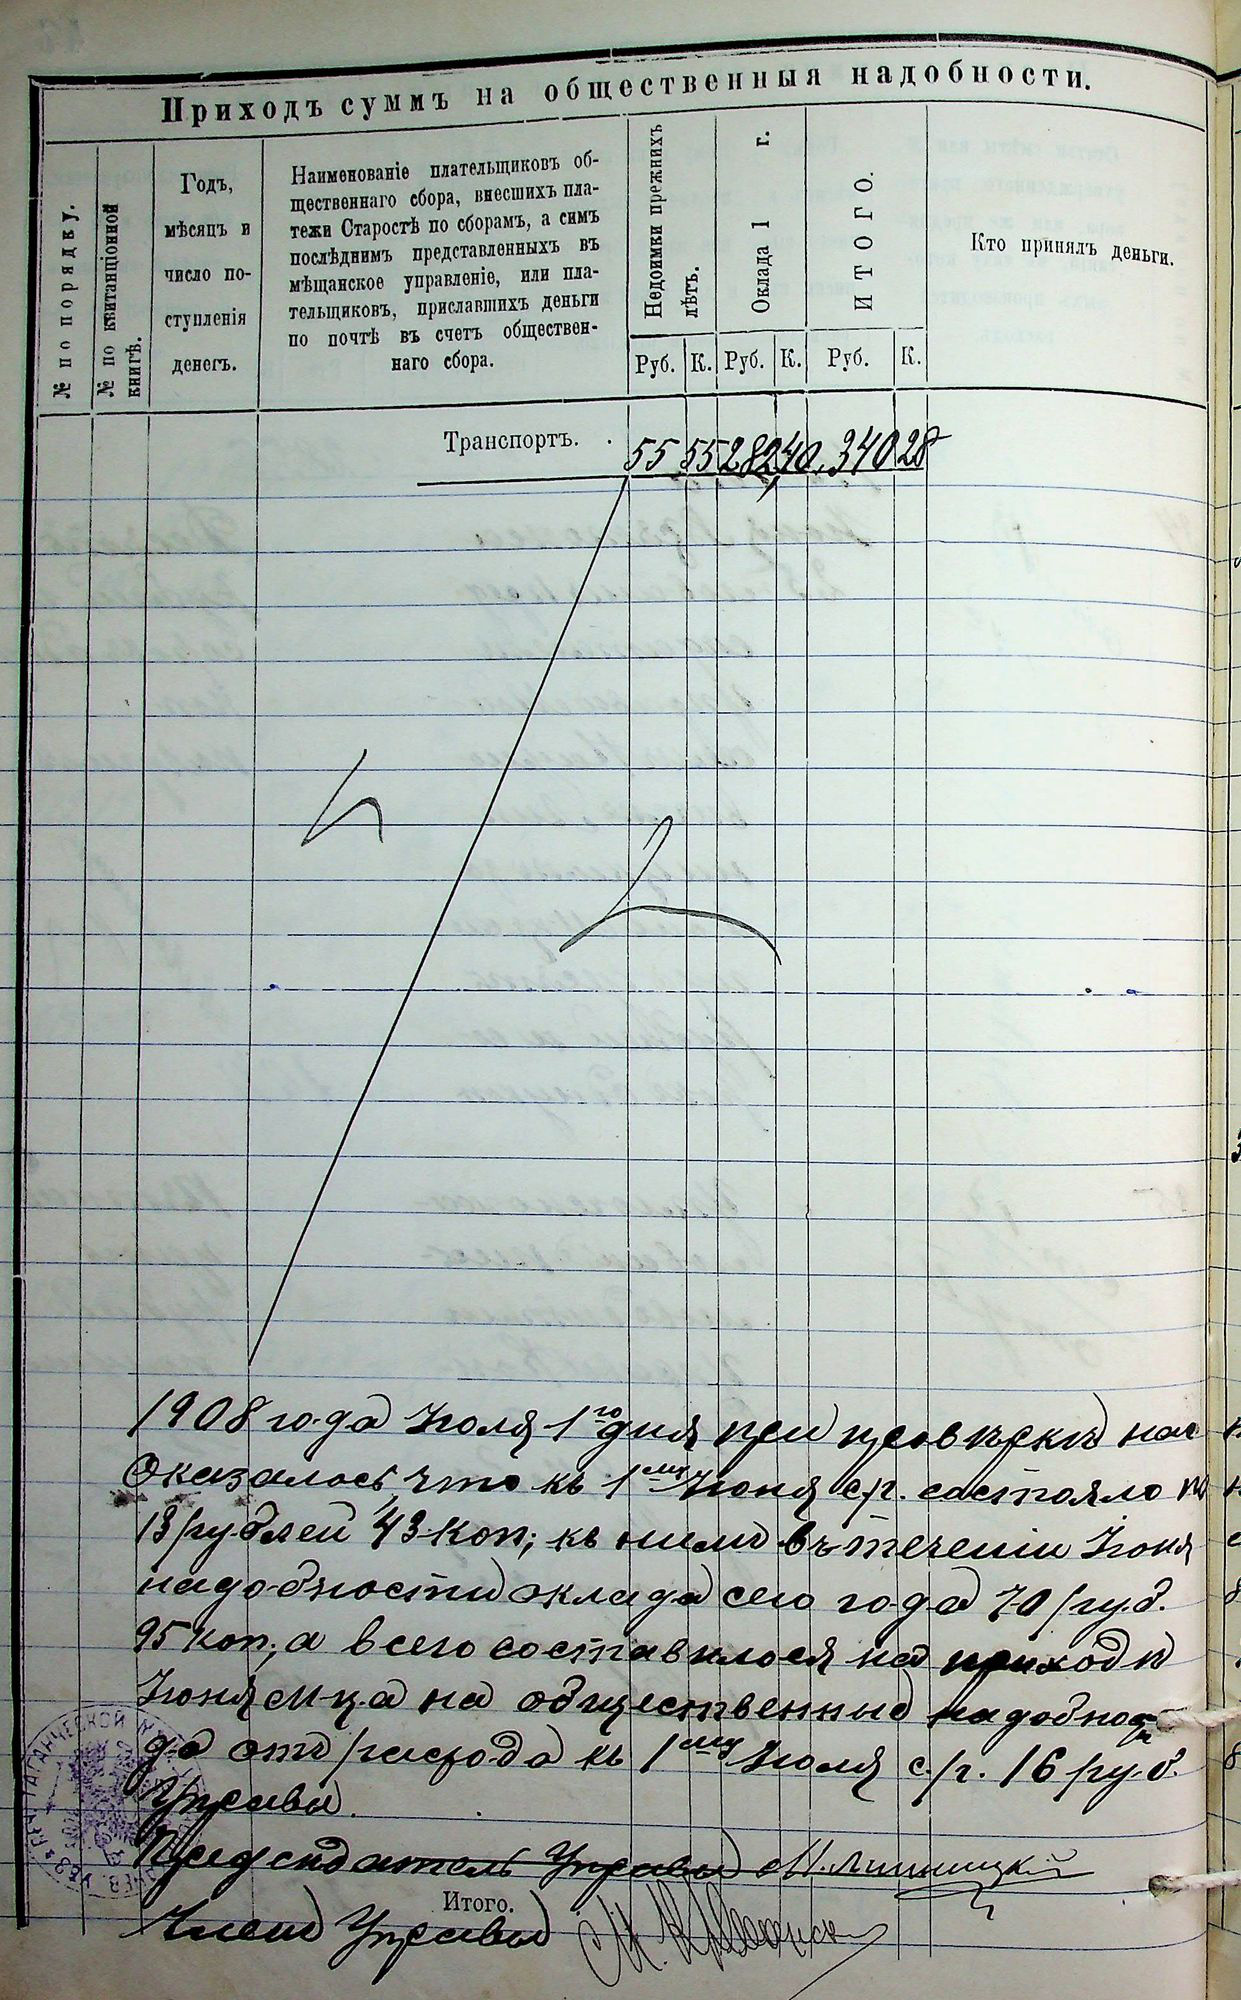 Приходъ суммъ на общественныя надобности.
№ по порядку.
№ по квитанціонной
книгѣ.
Годъ,
мѣсяцъ и
число по-
ступленія
денегъ.
Наименованіе плательщиковъ об-
щественнаго сбора, внесшихъ пла-
тежи Старостѣ по сборамъ, а симъ
послѣднимъ представленныхъ въ
мѣщанское управленіе, или пла-
тельщиковъ, приславшихъ деньги
по почтѣ въ счетъ обществен-
наго сбора.
Недоимки прежнихъ
лѣтъ.
Оклада 1 г.
ИТОГО.
Кто принялъ деньги.
Руб. К. Руб. К. Руб. К.
Транспортъ. . 55 55 282 40 340 28
1908 года Іюля 1го дня при провѣркѣ нас
Оказалось что къ 1му Іюня с/г. состояло на
13 рублей 43 коп; къ ними въ теченіи Іюня
надобности оклада сего года 70 руб.
95 коп; а всего составилося на приходѣ
Іюня м-ца на общественныя надобности
да отъ расхода къ 1му Іюля с/г. 16 руб.
Управы.
Предсѣдатель Управы
Итого.
Члены Управы